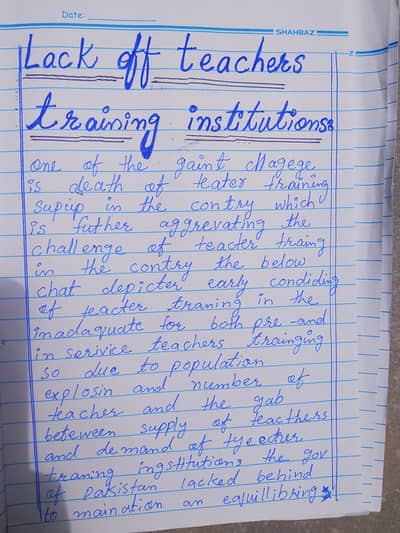 Date:
SHAHBAZ
Lack off teachers
training institutions
one of the gaint chagege
is death of teater training
supup in the contry which
is futher aggrevating the
challenge of teacter traing
in the contry the below
chat depicter early condiding
of teacter traning in the
inadaquate for both pre-and
in serivice teachers trainging
so due to population
explosin and number of
teacher and the gab
beteween supply of teacthers
and demand of tyeecher
traning ingstitutions the gov
of pakistan lacked behind
to maination an equillibring